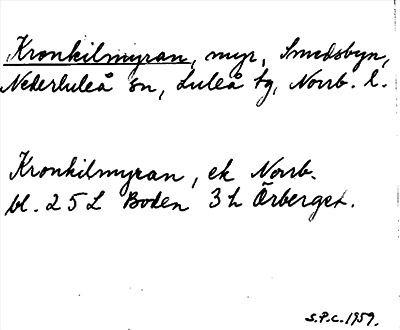 Kronkilmyran, myr, Smedsbyn,
Nederluleå sn, Luleå tg, Norrb. l.
Kronkilmyran, ek Norrb.
bl. 25L Boden 3h Örberget.
S.P.C. 1959.